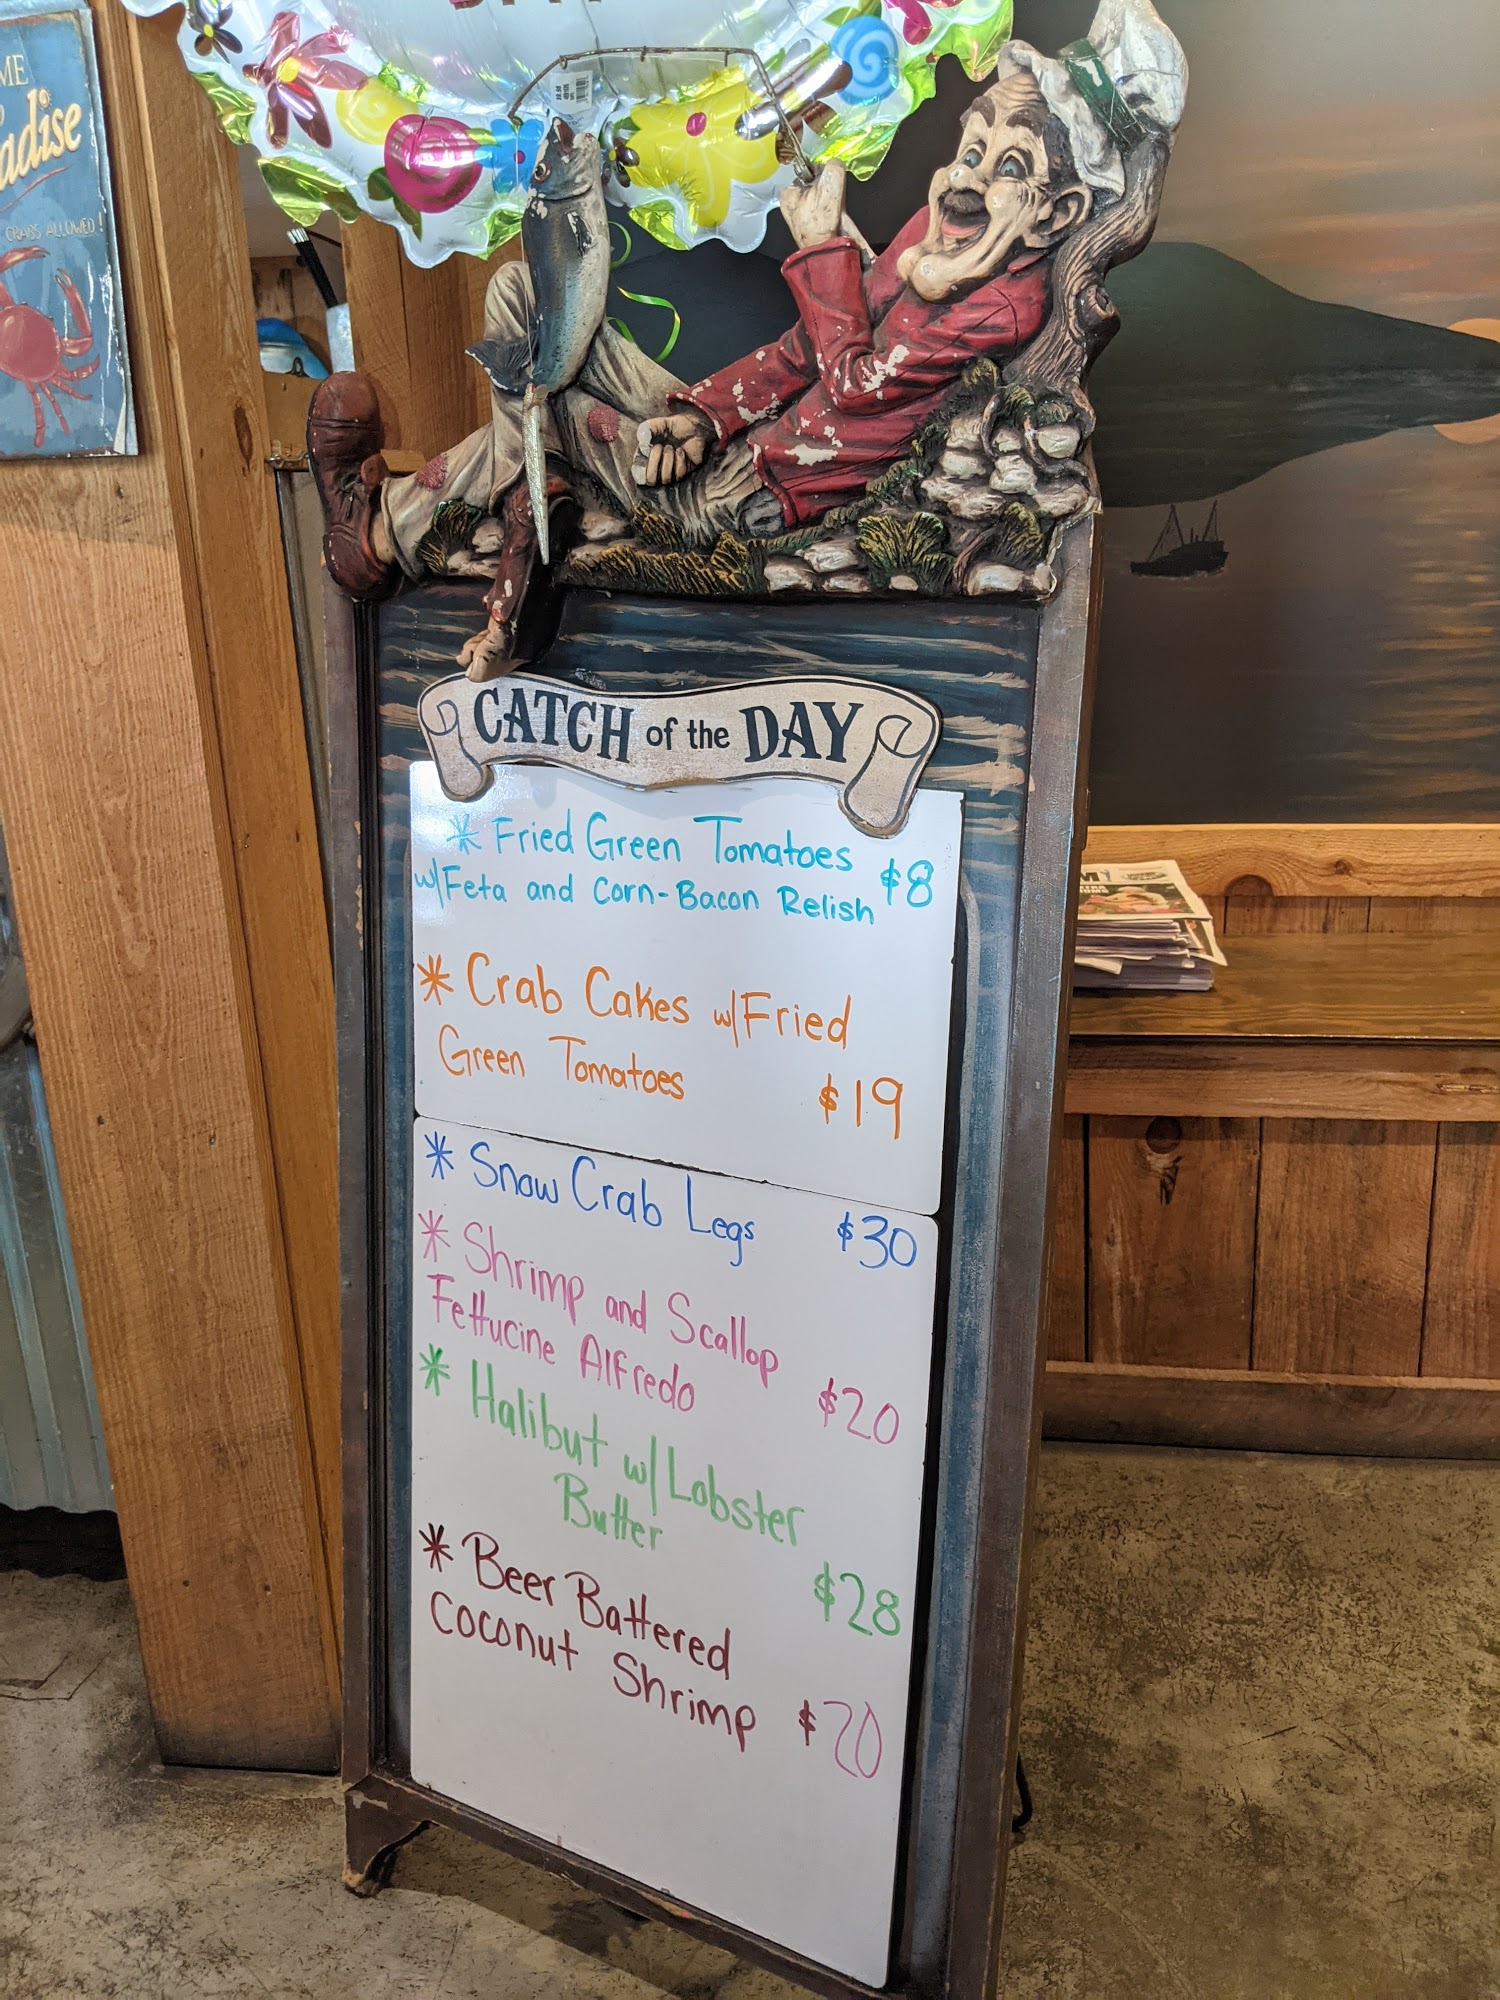 ME
adise
CRABS ALLOWED!
CATCH of the DAY
* Fried Green Tomatoes $8
w/Feta and Corn-Bacon Relish
* Crab Cakes w/Fried
Green Tomatoes $19
* Snow Crab Legs $30
* Shrimp and Scallop
Fettucine Alfredo $20
* Halibut w/Lobster
Butter $28
* Beer Battered
Coconut Shrimp $20